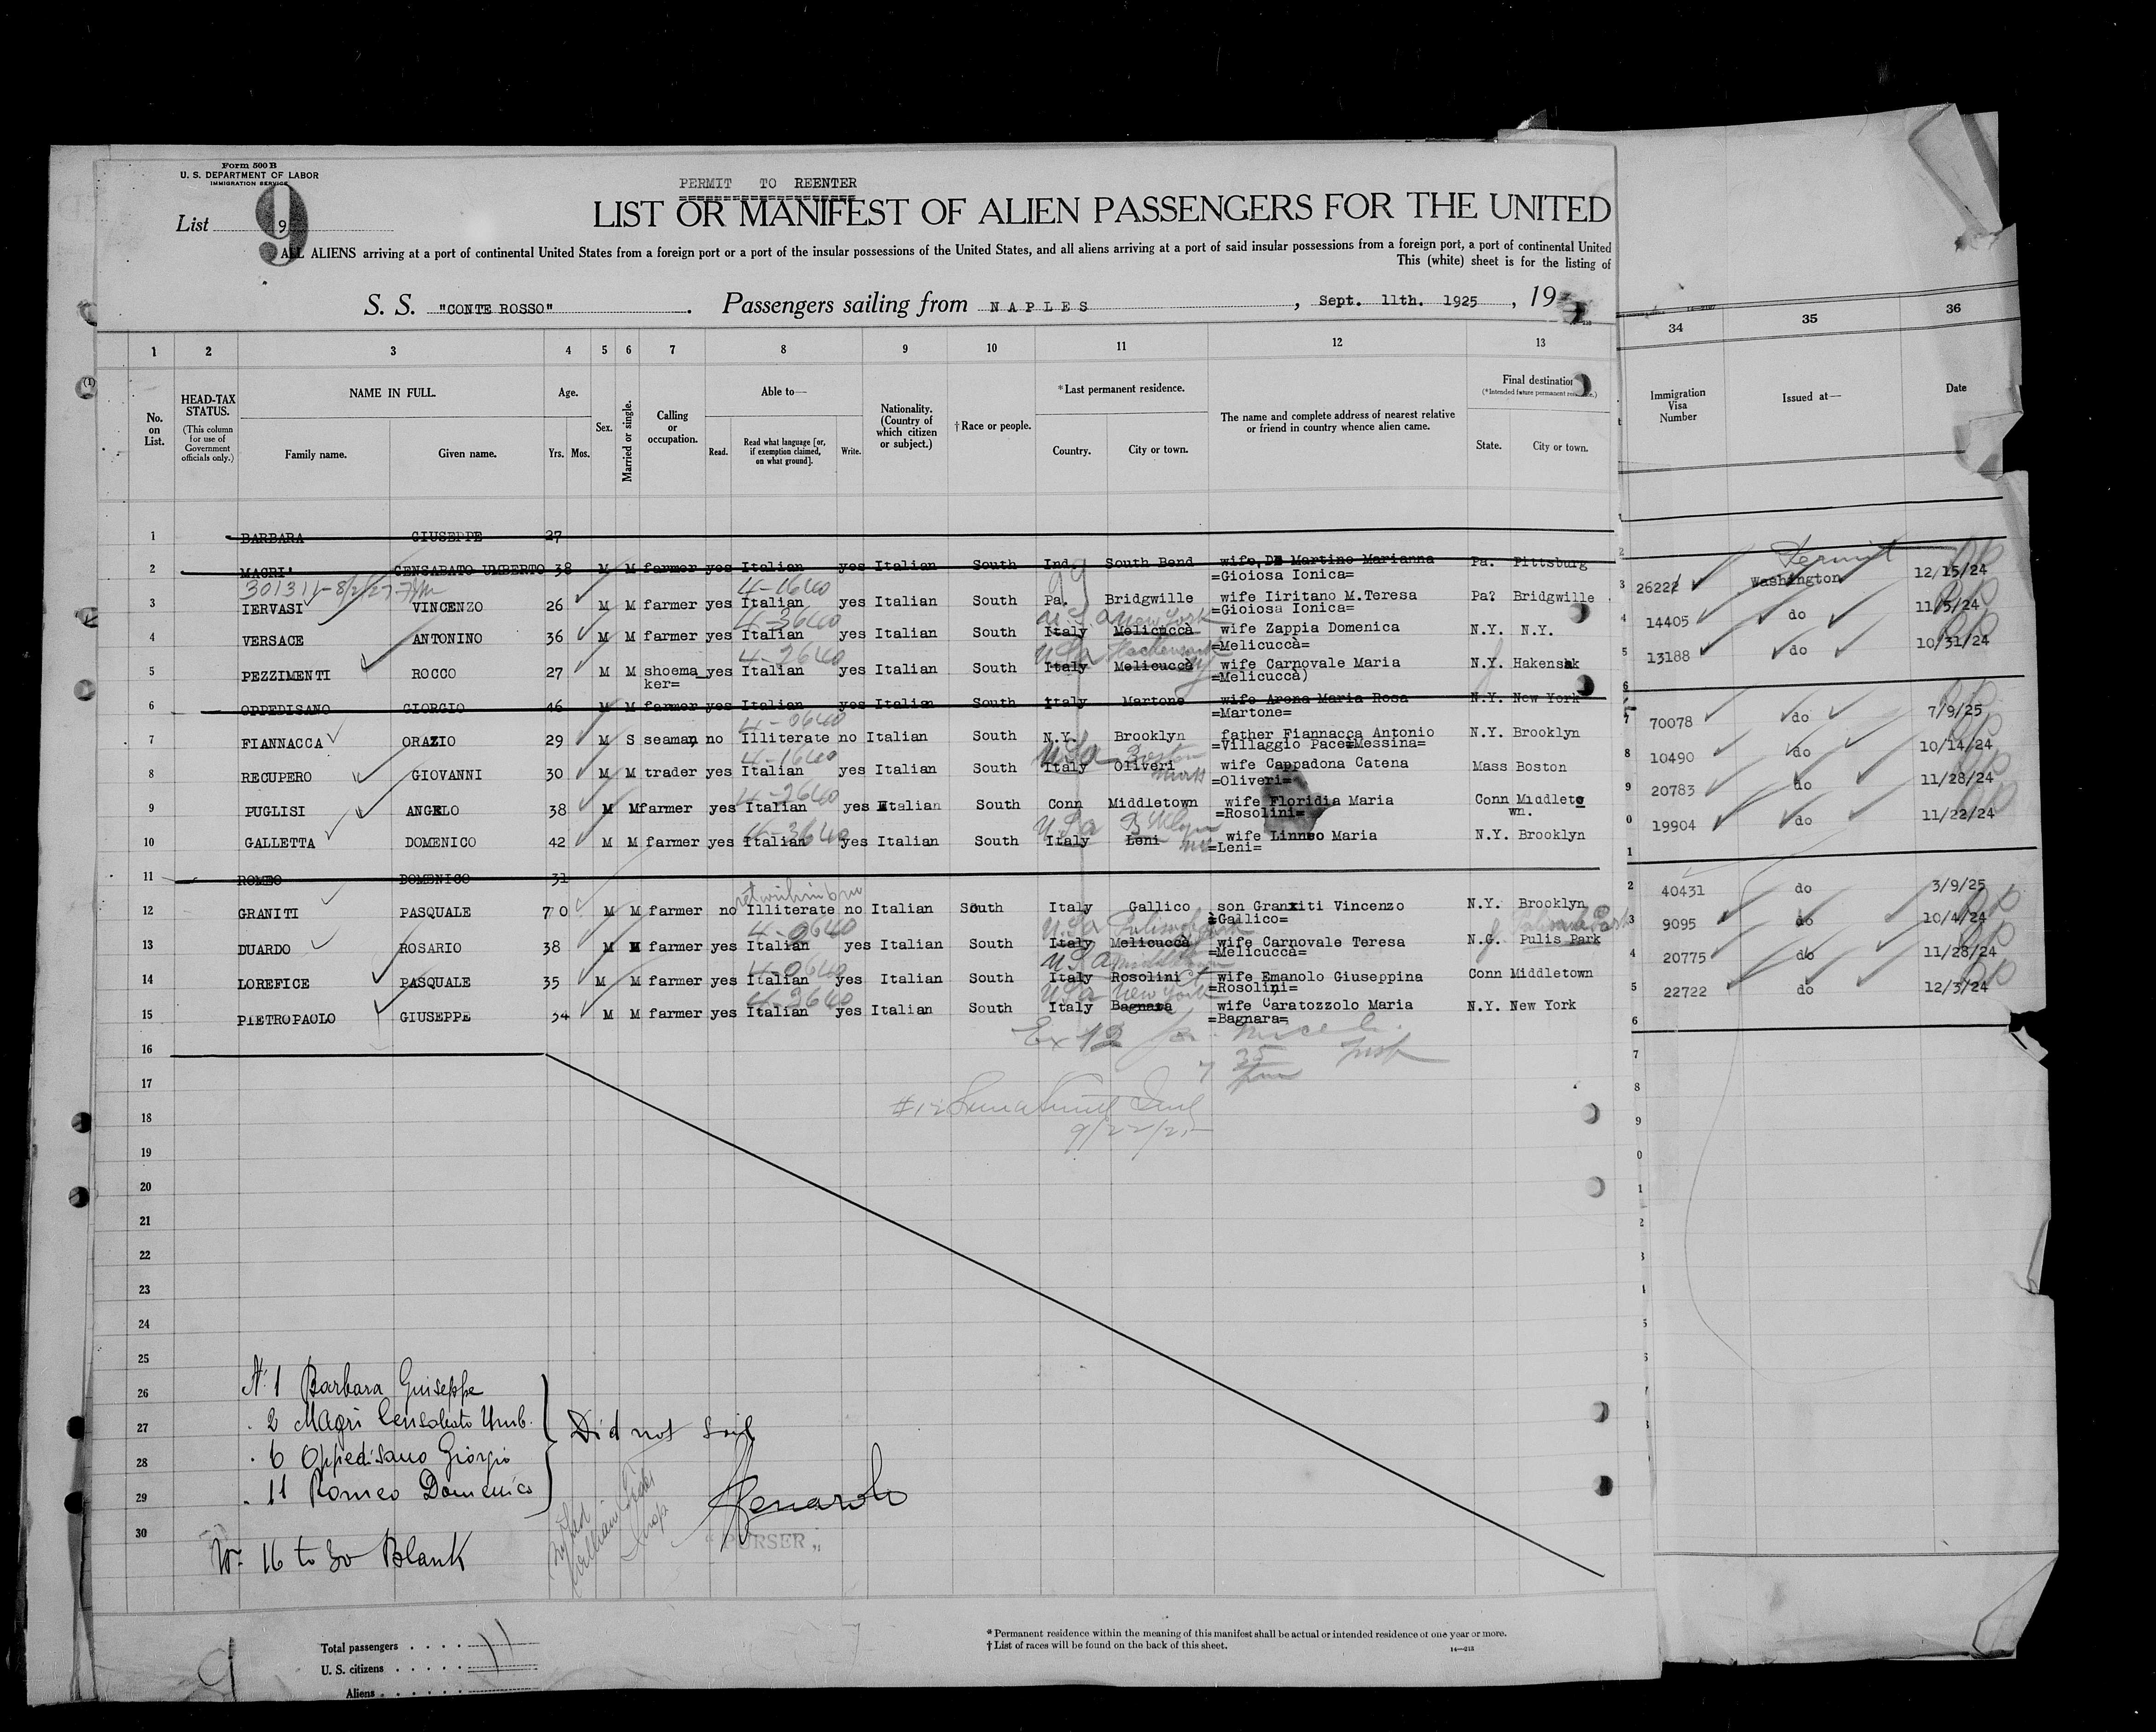 Form 500 B
U. S. DEPARTMENT OF LABOR
IMMIGRATION SERVICE
PERMIT TO REENTER
List 9
9
LIST OR MANIFEST OF ALIEN PASSENGERS FOR THE UNITED
ALL ALIENS arriving at a port of continental United States from a foreign port or a port of the insular possessions of the United States, and all aliens arriving at a port of said insular possessions from a foreign port, a port of continental United
This (white) sheet is for the listing of
S. S. "CONTE ROSSO". Passengers sailing from NAPLES, Sept. 11th. 1925, 19
1 2 3 4 5 6 7 8 9 10 11 12 13 34 35 36
No. on List.
HEAD-TAX STATUS.
(This column for use of Government officials only.)
NAME IN FULL.
Family name. Given name.
Age.
Yrs. Mos.
Sex.
Married or single.
Calling or occupation.
Able to—
Read. Read what language [or, if exemption claimed, on what ground]. Write.
Nationality. (Country of which citizen or subject.)
† Race or people.
*Last permanent residence.
Country. City or town.
The name and complete address of nearest relative or friend in country whence alien came.
Final destination
(*Intended future permanent residence.)
State. City or town.
Immigration Visa Number
Issued at—
Date
1 BARBARA GIUSEPPE 27
2 MAGRI' CENSABATO UMBERTO 38 M M farmer yes Italian yes Italian South Ind. South Bend wife, De Martino Marianna Pa. Pittsburg
=Gioiosa Ionica=
Permit
301311-8/2/27
4-1640
3 IERVASI VINCENZO 26 M M farmer yes Italian yes Italian South Pa. Bridgwille wife Iiritano M.Teresa Pa? Bridgwille 26222 Washington 12/15/24
=Gioiosa Ionica=
4-3640 U.S.A New York
4 VERSACE ANTONINO 36 M M farmer yes Italian yes Italian South Italy Melicuccà wife Zappia Domenica N.Y. N.Y. 14405 do 11/5/24
=Melicuccà=
4-2640 USA Hackensack
5 PEZZIMENTI ROCCO 27 M M shoema_ yes Italian yes Italian South Italy Melicuccà wife Carnovale Maria N.Y. Hakensak 13188 do 10/31/24
ker= =Melicuccà)
6 OPPEDISANO GIORGIO 46 M M farmer yes Italian yes Italian South Italy Martone wife Arena Maria Rosa N.Y. New York
=Martone=
4-0640
7 FIANNACCA ORAZIO 29 M S seaman no Illiterate no Italian South N.Y. Brooklyn father Fiannacca Antonio N.Y. Brooklyn 70078 do 7/9/25
=Villaggio Pace=Messina=
4-1640 USA Boston
8 RECUPERO GIOVANNI 30 M M trader yes Italian yes Italian South Italy Oliveri wife Cappadona Catena Mass Boston 10490 do 10/14/24
=Oliveri=
4-2640
9 PUGLISI ANGELO 38 M M farmer yes Italian yes Italian South Conn Middletown wife Floridia Maria Conn Middleto 20783 do 11/28/24
=Rosolini= wn.
4-3640 USA Bklyn
10 GALLETTA DOMENICO 42 M M farmer yes Italian yes Italian South Italy Leni wife Linneo Maria N.Y. Brooklyn 19904 do 11/22/24
=Leni=
11 ROMEO DOMENICO 31
12 GRANITI PASQUALE 70 M M farmer no Illiterate no Italian South Italy Gallico son Granxiti Vincenzo N.Y. Brooklyn 40431 do 3/9/25
=Gallico=
4-0640 USA
13 DUARDO ROSARIO 38 M M farmer yes Italian yes Italian South Italy Melicuccà wife Carnovale Teresa N.G. Pulis Park 9095 do 10/4/24
=Melicucca=
4-0640 USA Middletown Ct
14 LOREFICE PASQUALE 35 M M farmer yes Italian yes Italian South Italy Rosolini wife Emanolo Giuseppina Conn Middletown 20775 do 11/28/24
=Rosolini=
4-2640 USA New York
15 PIETROPAOLO GIUSEPPE 34 M M farmer yes Italian yes Italian South Italy Bagnara wife Caratozzolo Maria N.Y. New York 22722 do 12/3/24
=Bagnara=
16
17
18
9/22/25
19
20
21
22
23
24
25
26
27
28
29
30
N. 1 Barbara Giuseppe
. 2 Magri Censabato Umb.
. 6 Oppedisano Giorgio
. 11 Romeo Domenico
Did not sail
N. 16 to 30 Blank
"PURSER"
Total passengers . . . . 11
U. S. citizens . . . . .
Aliens . . . . . .
* Permanent residence within the meaning of this manifest shall be actual or intended residence of one year or more.
† List of races will be found on the back of this sheet.
14—218